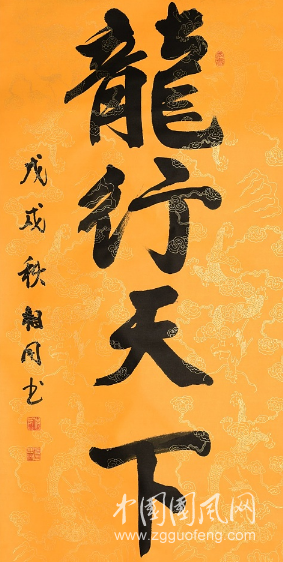 龍行天下
戊戌秋 相周书
中国国风网
www.zgguofeng.com